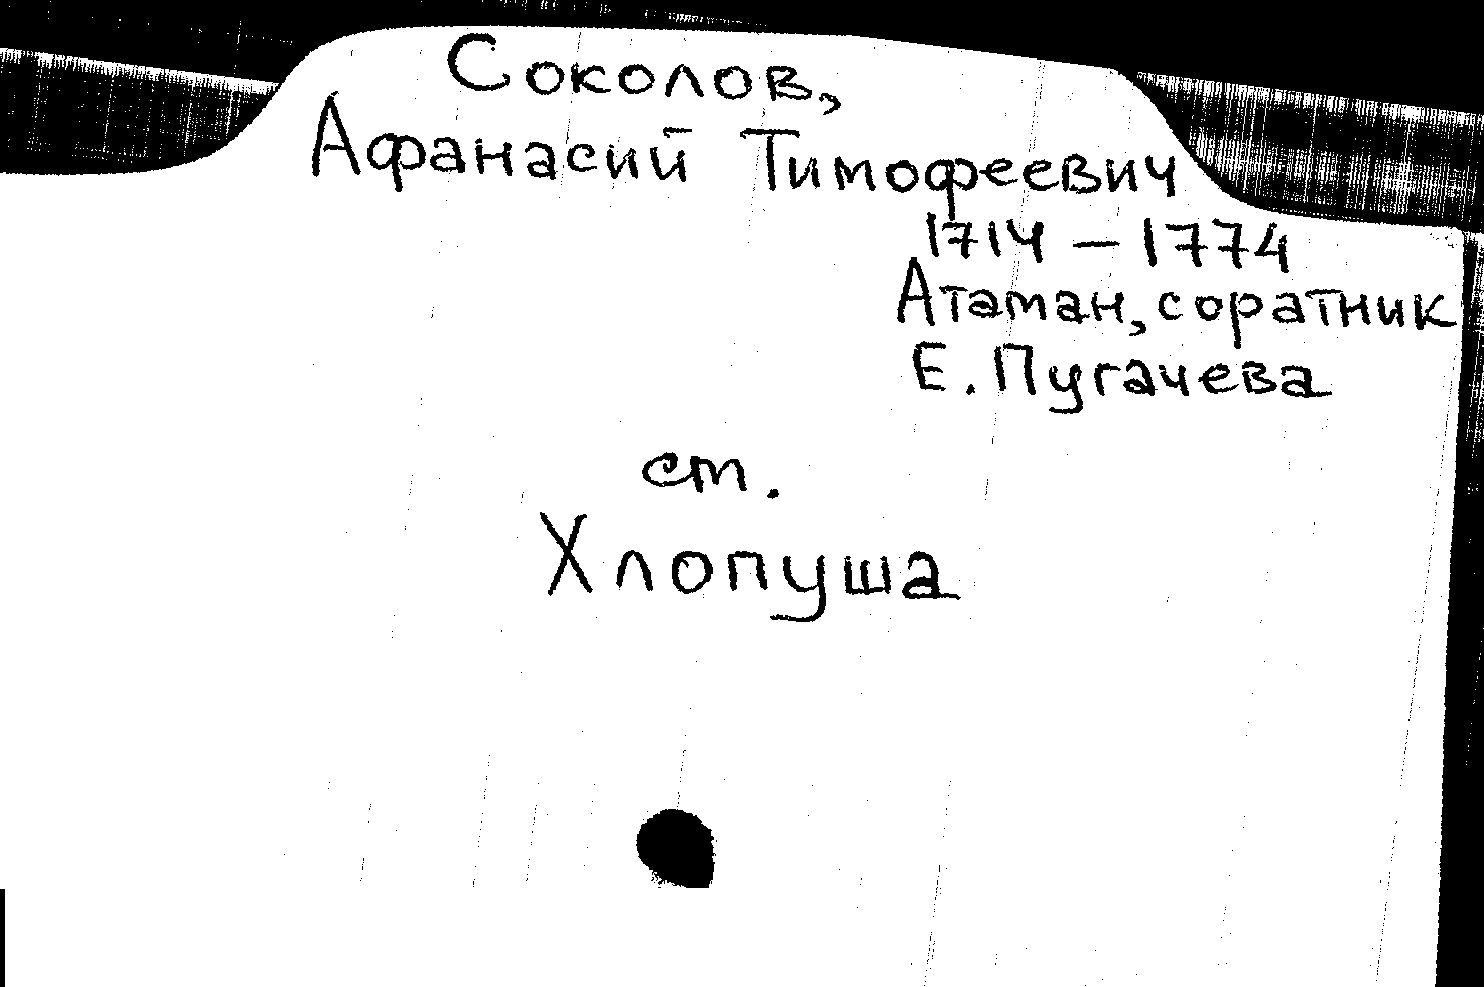 Соколов,
Афанасий Тимофеевич
1714 – 1774
Атаман, соратник
Е. Пугачева
ст.
Хлопуша